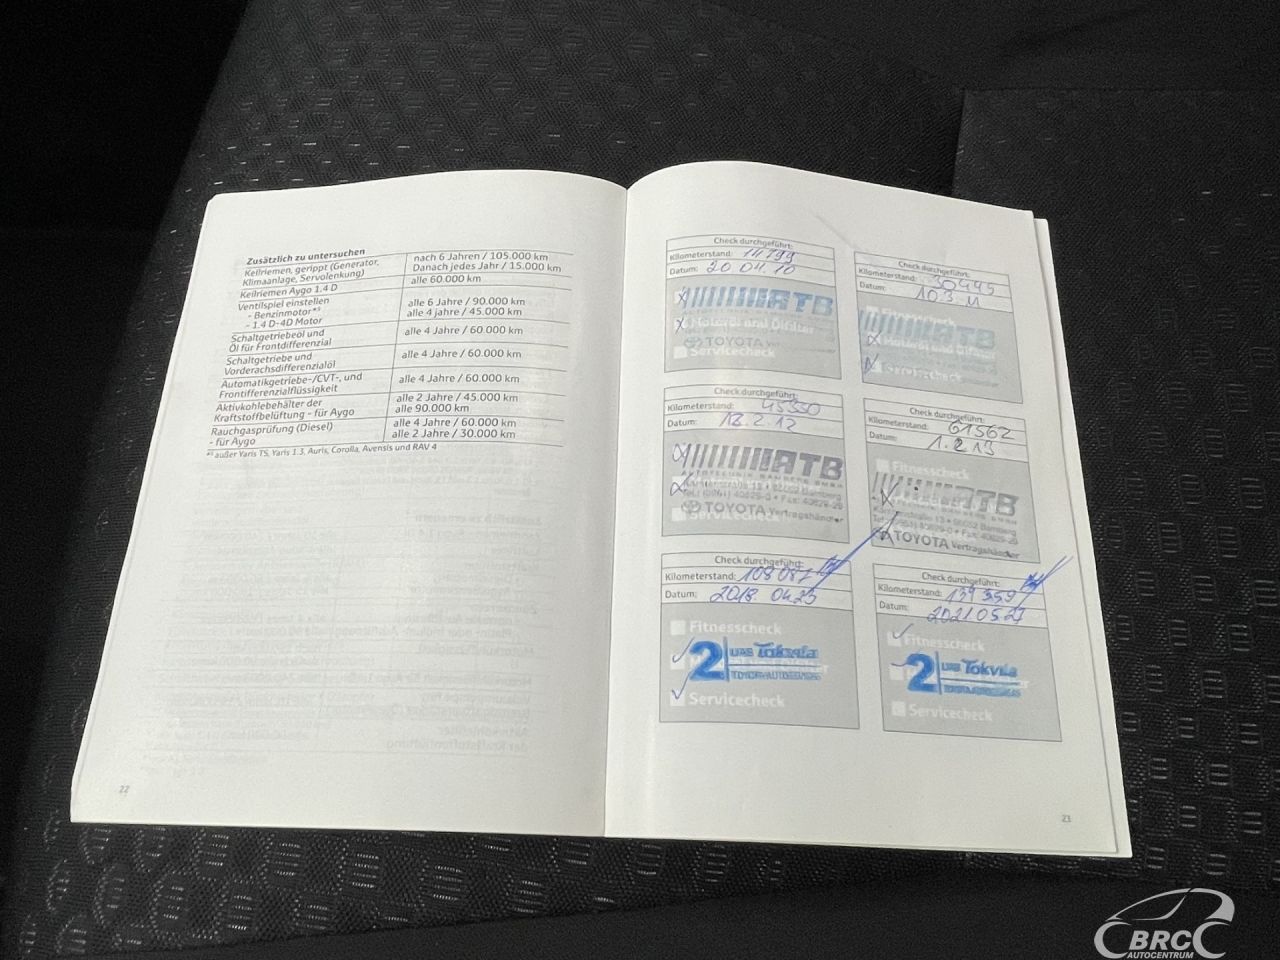 Zusätzlich zu untersuchen
Keilriemen, gerippt (Generator, Klimaanlage, Servolenkung) nach 6 Jahren / 105.000 km
Danach jedes Jahr / 15.000 km
Keilriemen Aygo 1.4 D alle 60.000 km
Ventilspiel einstellen
- Benzinmotor*³ alle 6 Jahre / 90.000 km
- 1.4 D-4D Motor alle 4 Jahre / 45.000 km
Schaltgetriebeöl und
Öl für Frontdifferenzial alle 4 Jahre / 60.000 km
Schaltgetriebe und
Vorderachsdifferenzialöl alle 4 Jahre / 60.000 km
Automatikgetriebe-/CVT-, und
Frontdifferenzialflüssigkeit alle 4 Jahre / 60.000 km
Aktivkohlebehälter der alle 2 Jahre / 45.000 km
Kraftstoffbelüftung - für Aygo alle 90.000 km
Rauchgasprüfung (Diesel) alle 4 Jahre / 60.000 km
- für Aygo alle 2 Jahre / 30.000 km
*³ außer Yaris TS, Yaris 1.3, Auris, Corolla, Avensis und RAV 4
22
Check durchgeführt:
Kilometerstand: 14799
Datum: 20.04.10
ATB
Motoröl und Ölfilter
TOYOTA
Servicecheck
Check durchgeführt:
Kilometerstand: 30445
Datum: 10.3.11
Fitnesscheck
ATB
Motoröl und Ölfilter
Servicecheck
Check durchgeführt:
Kilometerstand: 45350
Datum: 13.2.12
ATB
AUTOTECHNIK BAMBERG GMBH
Kärntenstraße 13 • 96052 Bamberg
TOYOTA Vertragshändler
Check durchgeführt:
Kilometerstand: 61562
Datum: 1.2.13
Fitnesscheck
ATB
AUTOTECHNIK BAMBERG GMBH
Kärntenstraße 13 • 96052 Bamberg
TOYOTA Vertragshändler
Check durchgeführt:
Kilometerstand: 108087
Datum: 2018.04.23
Fitnesscheck
2 UAB Tokvila
Servicecheck
Check durchgeführt:
Kilometerstand: 139 359
Datum: 2021.05.27
Fitnesscheck
2 UAB Tokvila
Servicecheck
23
BRC
AUTOCENTRUM